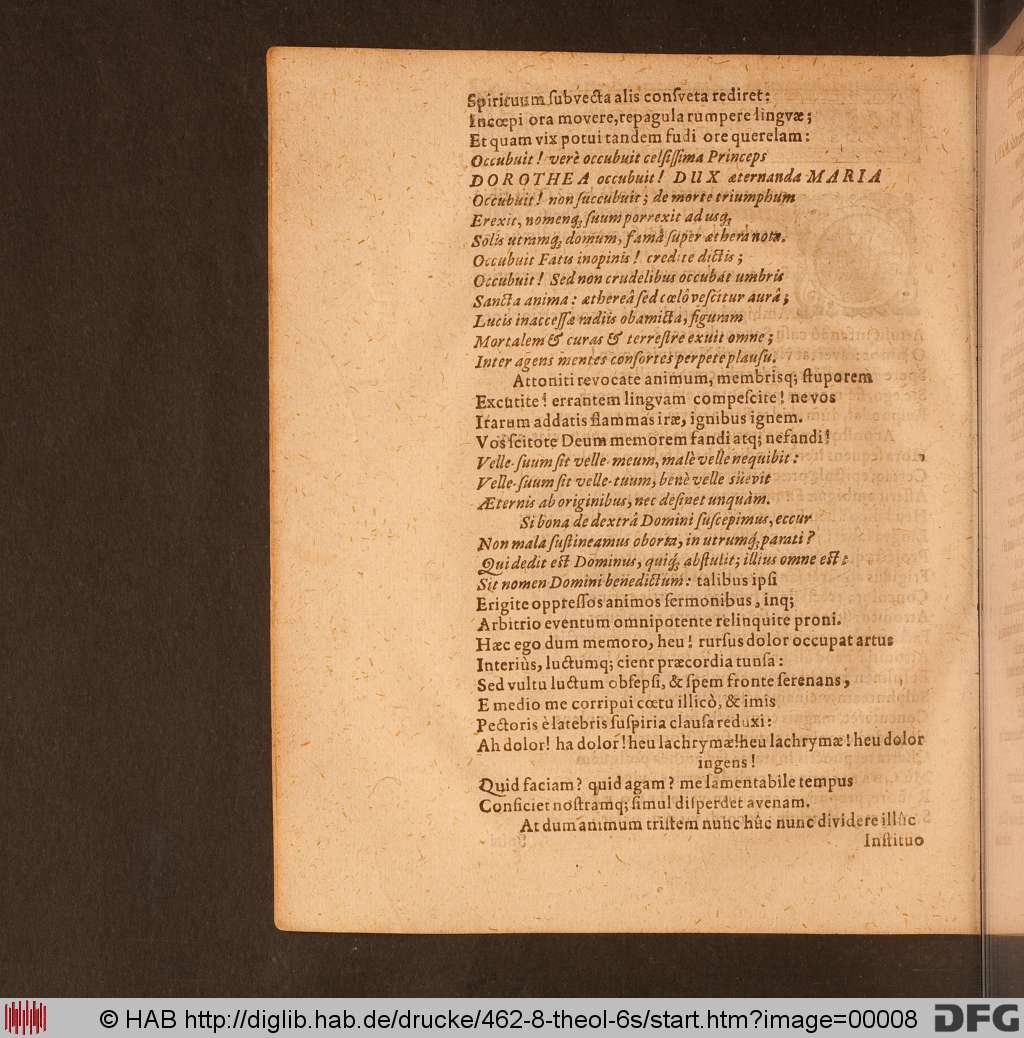 Spirituum ſubvecta alis conſveta rediret:
Incœpi ora movere, repagula rumpere lingvæ;
Et quam vix potui tandem fudi ore querelam:
Occubuit! verè occubuit celſiſſima Princeps
DOROTHEA occubuit! DUX æternanda MARIA
Occubuit! non ſuccubuit; de morte triumphum
Erexit, nomenq; ſuum porrexit ad usq;
Solis utramq; domum, famâ ſuper æthera nota.
Occubuit Fatis inopinis! credite dictis;
Occubuit! Sed non crudelibus occubat umbris
Sancta anima: æthereâ ſed cœlô veſcitur aurâ;
Lucis inacceſſæ radiis obamicta, figuram
Mortalem & curas & terreſtre exuit omne;
Inter agens mentes conſortes perpete plauſu.
Attoniti revocate animum, membrisq; ſtuporem
Excutite! errantem lingvam compeſcite! ne vos
Irarum addatis flammas iræ, ignibus ignem.
Vos ſcitote Deum memorem fandi atq; nefandi!
Velle-ſuum ſit velle-meum, malè velle nequibit:
Velle-ſuum ſit velle-tuum, benè velle süevit
Æternis ab originibus, nec deſinet unquàm.
Si bona de dextrâ Domini ſuſcepimus, eccur
Non mala ſuſtineamus oborta, in utrumq; parati?
Qui dedit eſt Dominus, quiq; abſtulit; illius omne eſt:
Sit nomen Domini benedictum: talibus ipſi
Erigite oppreſſos animos ſermonibus, inq;
Arbitrio eventum omnipotente relinquite proni.
Hæc ego dum memoro, heu! rurſus dolor occupat artus
Interiùs, luctumq; cient præcordia tunſa:
Sed vultu luctum obſepſi, & ſpem fronte ſerenans,
E medio me corripui cœtu illicò, & imis
Pectoris è latebris ſuſpiria clauſa reduxi:
Ah dolor! ha dolor! heu lachrymæ! heu lachrymæ! heu dolor
ingens!
Quid faciam? quid agam? me lamentabile tempus
Conficiet noſtramq; ſimul diſperdet avenam.
At dum animum triſtem nunc hûc nunc dividere illûc
Inſtituo
© HAB http://diglib.hab.de/drucke/462-8-theol-6s/start.htm?image=00008
DFG